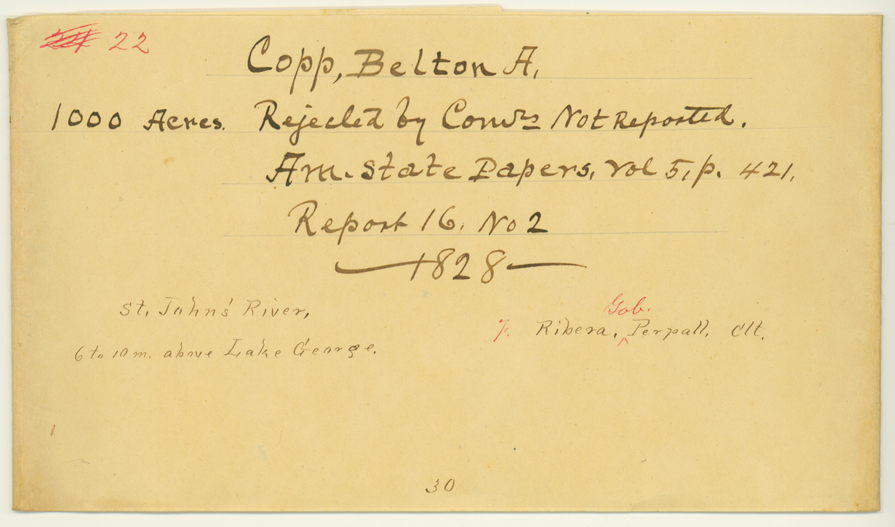 22
Copp, Belton A.
1000 Acres. Rejected by Comrs Not Reported.
Am. State Papers, Vol 5, p. 421.
Report 16. No 2
1828
St. Johns' River,
6 to 10 m. above Lake George.
Gob.
F. Ribera, ^Perpall, Clt.
30